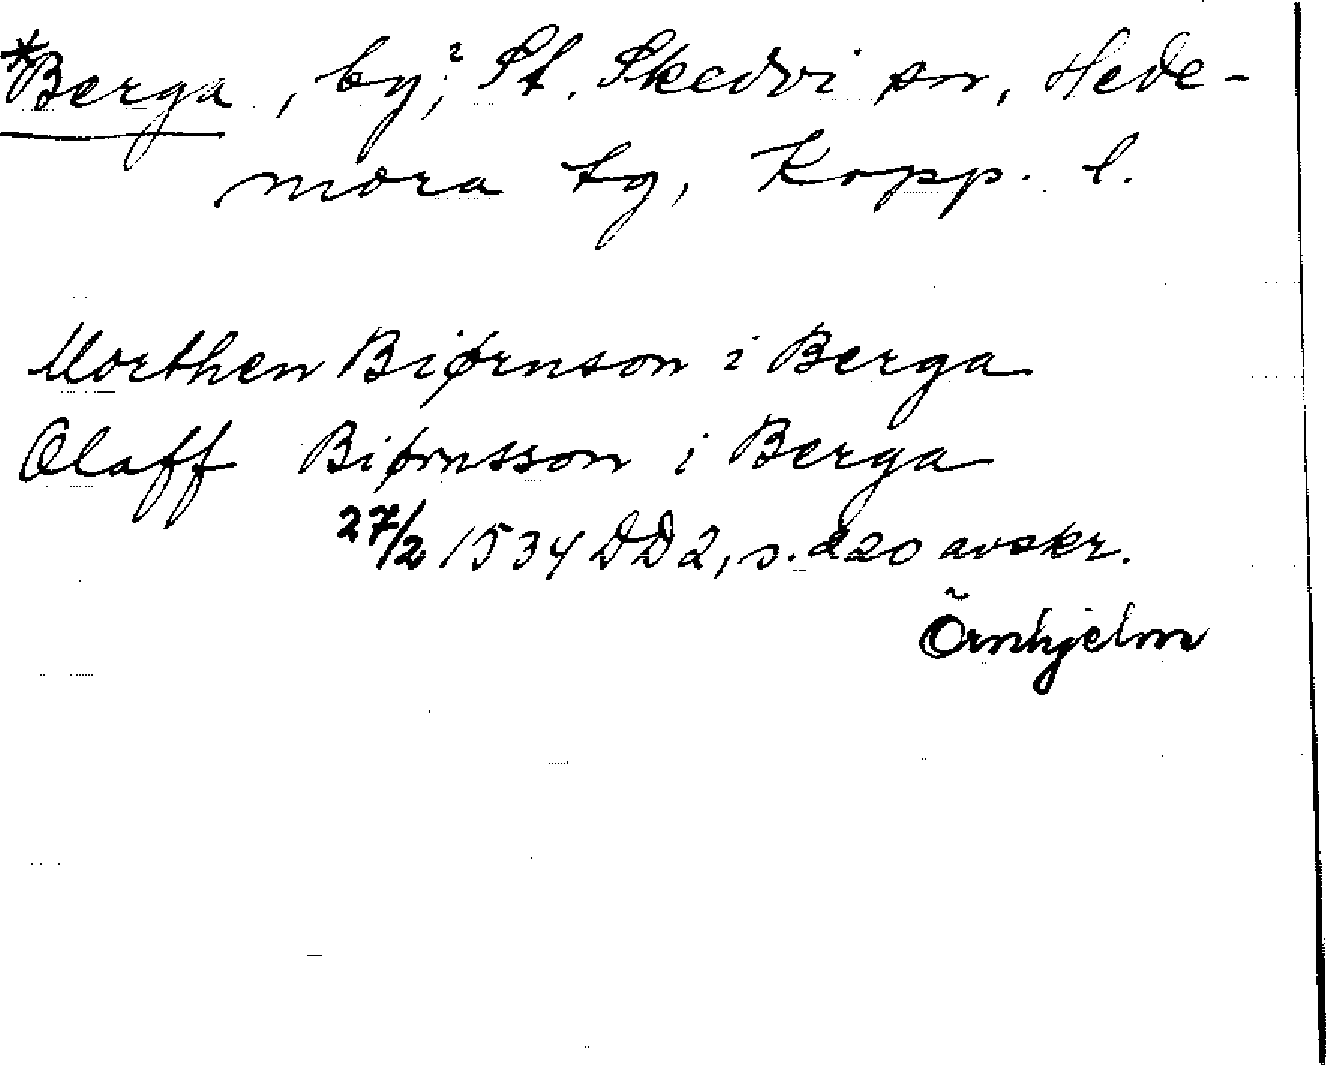 *Berga, by,? St. Skedvi sn, Hede-
mora tg, Kopp. l.
Morthen Biørnson i Berga
Olaff Biørnsson i Berga
27/2 1534 DD2, s. 220 avskr.
Örnhjelm